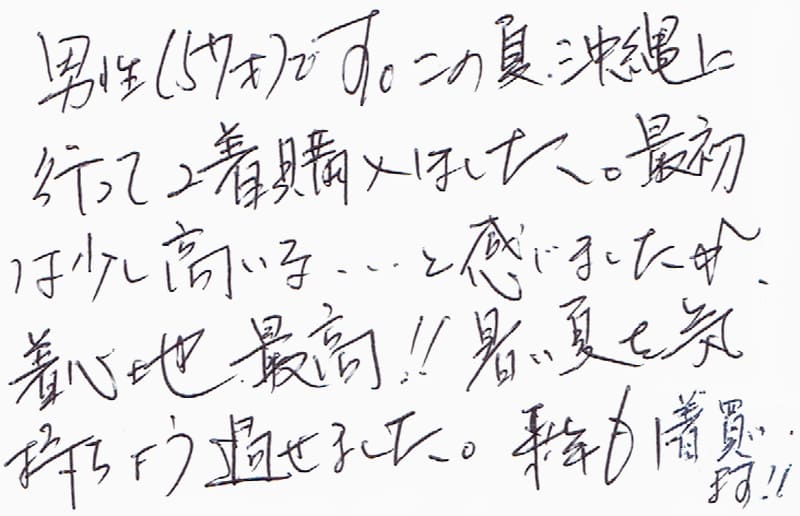 男性(57才)です。この夏、沖縄に
行って2着購入しました。最初
は少し高いな...と感じましたが、
着心地最高!!暑い夏を気
持ちよう過せました。来年も1着買い
ます!!